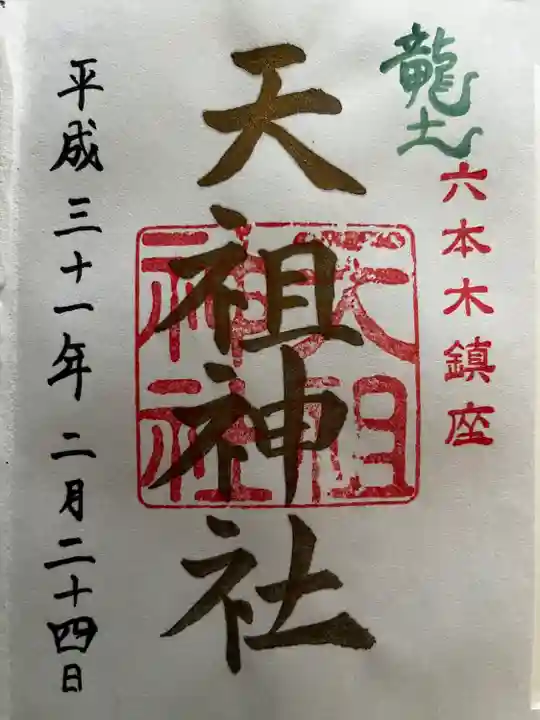 龍土
六本木鎮座
天祖神社
天祖神社
平成三十一年 二月二十四日